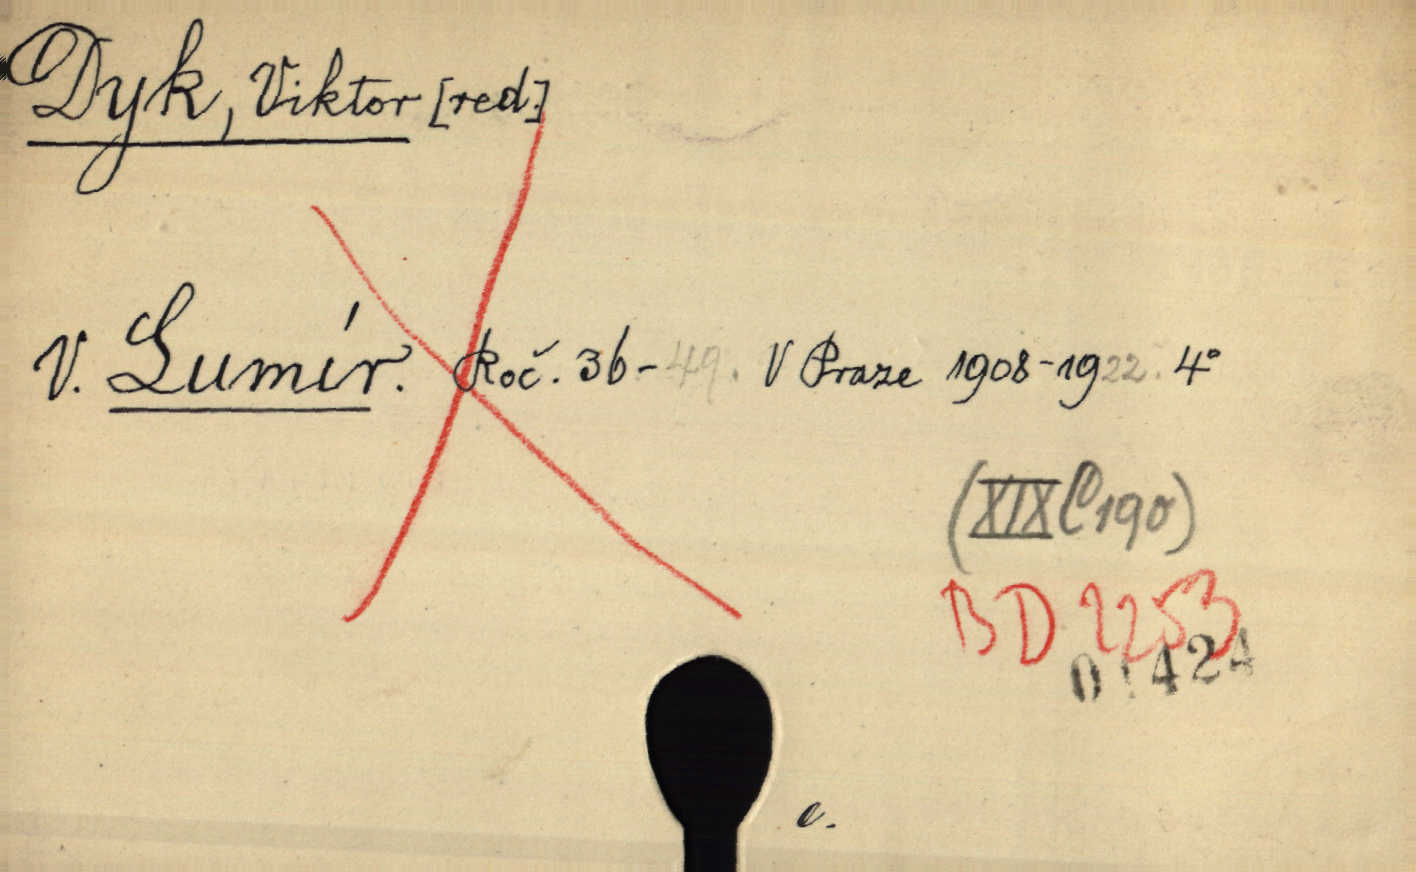 Dyk, Viktor [red.]
V. Lumír. Roč. 36-49. V Praze 1908-1922. 4°
(XIX C 190)
BD 2253
01424
c.